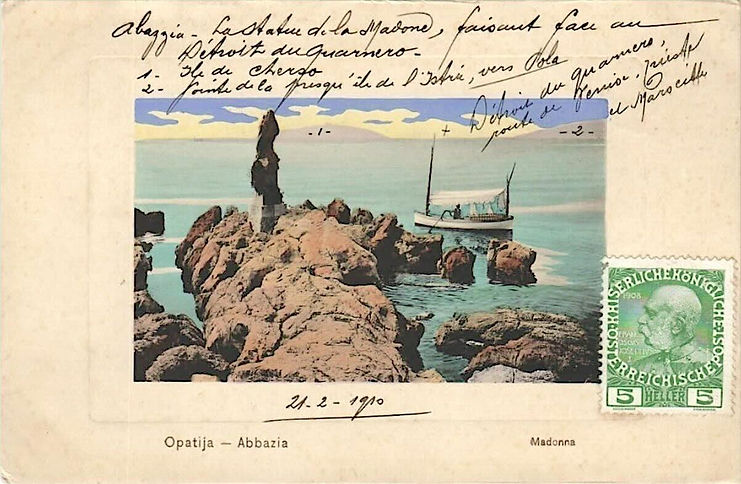 Abaggia - La Statue de la Madone, faisant face au
Détroit du Quarnero -
1 - Ile de Cherso
2 - Pointe de la presqu'île de l'Istrie, vers Pola
+ Détroit du Quarnero,
route de Venise, Trieste
et Marseille
-1-
-2-
KAISERLICHE KÖNIGLICHE ÖSTERREICHISCHE
1908
FRANZ
JOSEF I
5 HELLER 5
21-2-1910
Opatija – Abbazia
Madonna